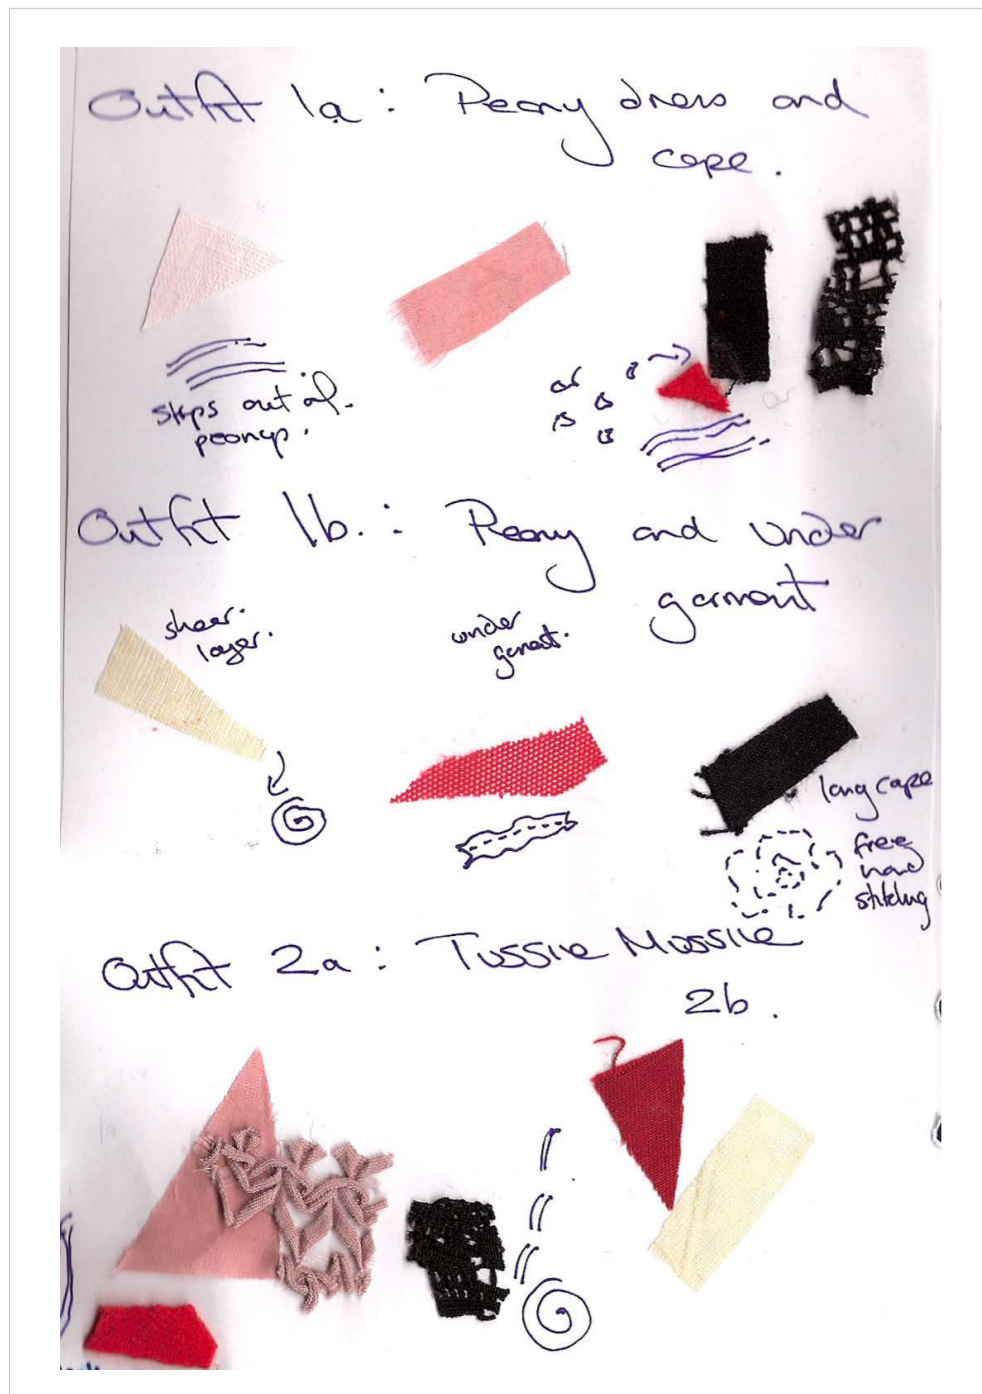 Outfit 1a : Peony dress and
cape .
or
strips out of
peony .
Outfit 1b. : Peony and under
garment
sheer
layer.
under
garment.
long cape
free
hand
stitching
Outfit 2a : Tussie Mussie
2b .